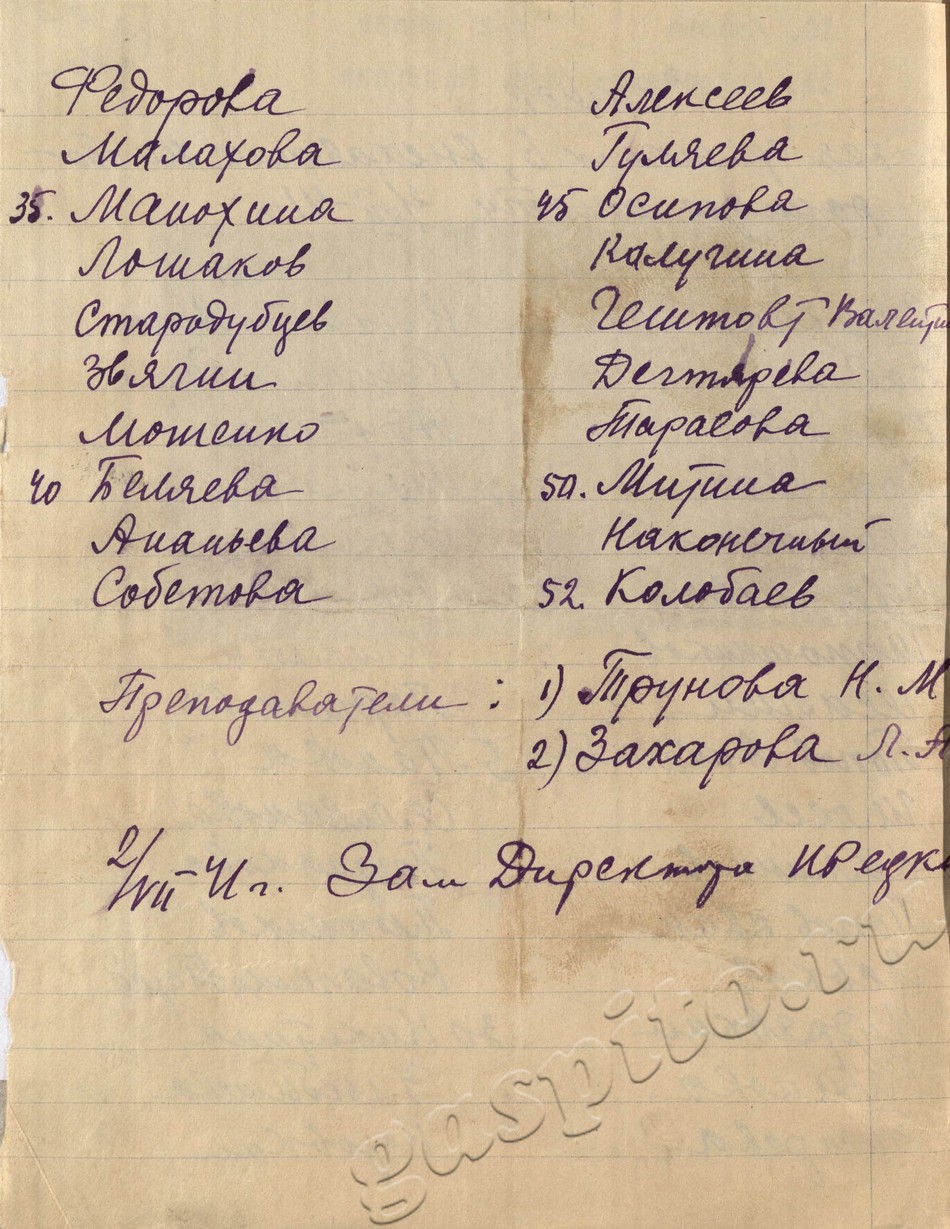 Федорова
Малахова
35. Манохина
Лошаков
Стародубцев
Звягин
Мотенко
40 Беляева
Ананьева
Собетова
Алексеев
Гуляева
45 Осипова
Калугина
Валенти
Дегтярева
Тарасова
50. Митина
Наконечный
52. Колобаев
Преподаватели : 1) Трунова Н. М
2) Захарова Л. А
2/VII 41 г. Зам Директора
gaspito.ru